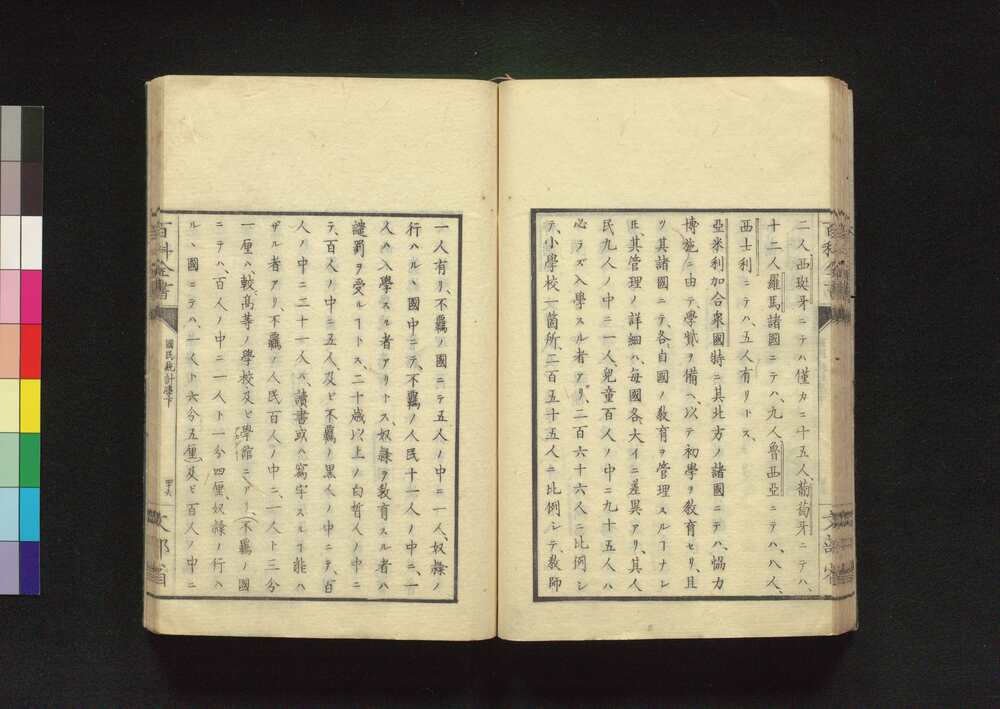 二人西班牙ニテハ僅カニ十五人、葡萄牙ニテハ、
十二人羅馬諸國ニテハ、九人魯西亞ニテハ、八人、
西士利ニテハ、五人有リトス、
亞米利加合衆國特ニ其北方ノ諸國ニテハ、恊力
博施ニ由テ、學貲ヲ備ヘ、以テ初學ヲ敎育セリ、且
ツ其諸國ニテ、各自國ノ敎育ヲ管理スルヿナレ
𪜈、其管理ノ詳細ハ、每國各、大イニ差異アリ、其人
民九人ノ中ニ一人、兒童百人ノ中ニ九十五人ハ
必ラズ入學スル者アリ、二百六十六人ニ比例シ
テ、小學校一箇所、二百五十五人ニ比例シテ、敎師
百科全書
文部省
一人有リ、不羈ノ國ニテ五人ノ中ニ一人、奴隷ノ
行ハルヽ國中ニテ、不羈ノ人民十一人ノ中ニ、一
人ハ入學スル者アリトス、奴隷ヲ敎育スル者ハ
譴罰ヲ受ルヿトス、二十歳以上ノ白晳人ノ中ニ
テ、百人ノ中ニ五人、及ヒ不羈ノ黑人ノ中ニテ、百
人ノ中ニ二十一人ハ、讀書或ハ寫字スルヿ能ハ
ザル者アリ、不羈ノ人民百人ノ中ニ、一人ト三分
一厘ハ、較高等ノ學校及ヒ學館ニアリ、不羈ノ國
ニテハ、百人ノ中ニ一人ト一分四厘、奴隷ノ行ハ
ルヽ國ニテハ、一人ト六分五厘、及ヒ百人ノ中ニ
百科全書
國民統計學下
文部省